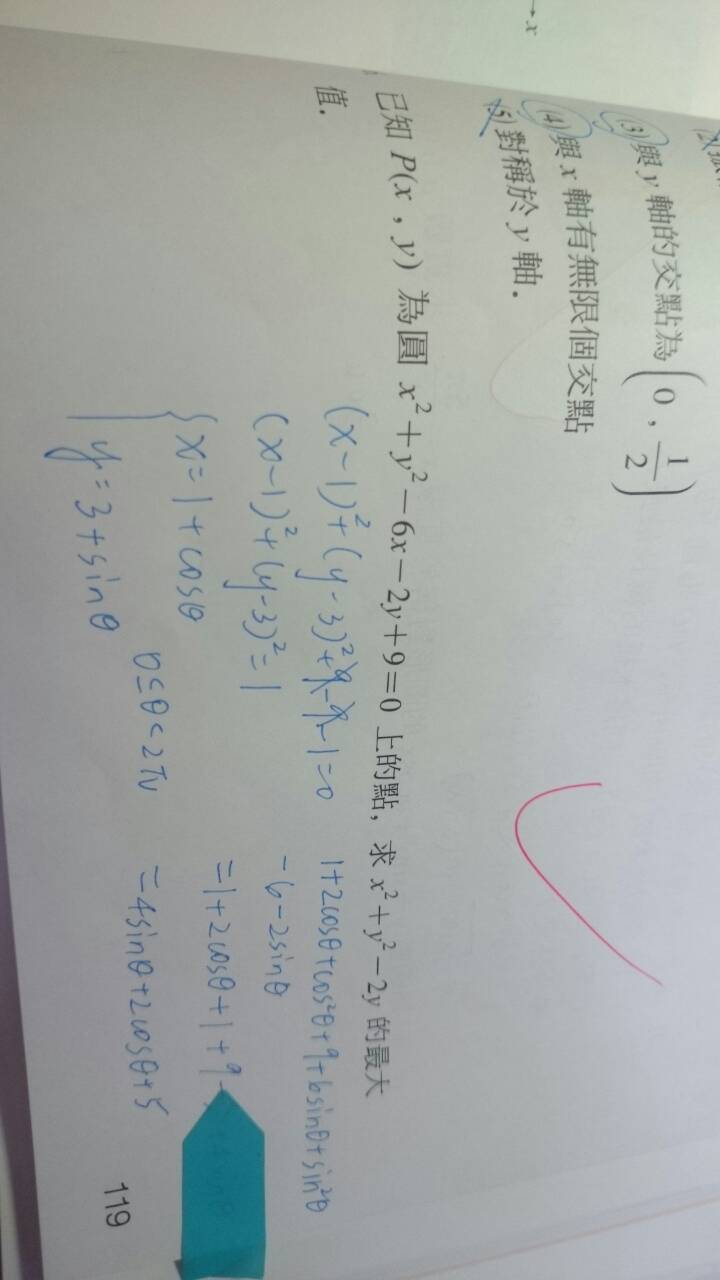 →x
(3) 與 y 軸的交點為 (0 , 1/2)
(4) 與 x 軸有無限個交點
(5) 對稱於 y 軸．
已知 P(x , y) 為圓 x²+y²−6x−2y+9=0 上的點，求 x²+y²−2y 的最大
值．
(x−1)²+(y−3)²+9−9−1=0
(x−1)²+(y−3)²=1
{x=1+cosθ
y=3+sinθ
0≤θ<2π
1+2cosθ+cos²θ+9+6sinθ+sin²θ
−6−2sinθ
=1+2cosθ+1+9
=4sinθ+2cosθ+5
119